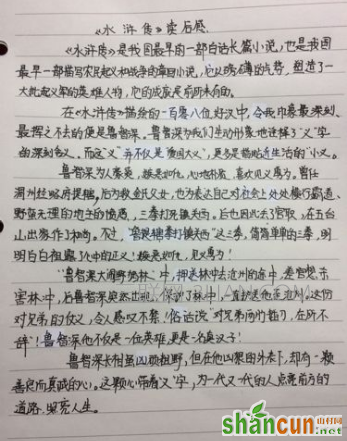 《水浒传》读后感
《水浒传》是我国最早的一部白话长篇小说，也是我国
最早一部描写农民起义和战争的章回小说，它以磅礴的气势，塑造了一
大批起义军的英雄人物，它的成就是前所未有的。
在《水浒传》描绘的一百零八位好汉中，令我印象最深刻、
最挥之不去的便是鲁智深。鲁智深为我们生动形象地诠释了"义"字
的深刻含义，而这"义"并不仅是"爱国大义"，更多是贴近生活的"小义"。
鲁智深为人豪爽、嫉恶如仇，心地朴质、喜欢见义勇为。曾任
渭州经略府提辖，后为救金氏父女，也为表达自己对社会上处处横行霸道、
野蛮无理的地主的愤慨，三拳打死镇关西。后也因此丢了官职，在五台
山出家作了和尚。不过，"鲁提辖拳打镇关西"这三拳，简简单单的三拳，明
明白白袒露了心中的正义！嫉恶如仇，见义勇为！
"鲁智深大闹野猪林"中，押送林冲去沧州的途中，差官想杀
害林冲，后鲁智深突然出现，保护了林冲，一直护送他至沧州，这份
对兄弟的仗义，令人感叹不零！俗话说"对兄弟两肋插刀，在所不
辞"！鲁智深他不仅是一位英雄，更是一名真汉子！
鲁智深长相虽凶狠粗野，但在他凶狠的外表下，却有一颗
善良而真诚的心。这颗心带着"义"字，为一代又一代的人点亮前方的
道路，照亮人生。
shancun
山村网
.net